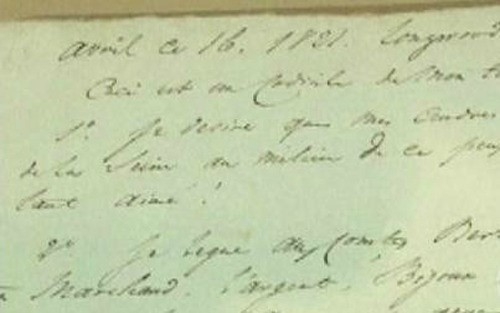 avril ce 16. 1821. Longwood
Ceci est un Codicile de mon te
1° Je desire que mes Cendres
de la Seine au milieu de ce peup
tant aimé!
2° Je legue aux Comtes Ber
Marchand. l'argent, Bijoux